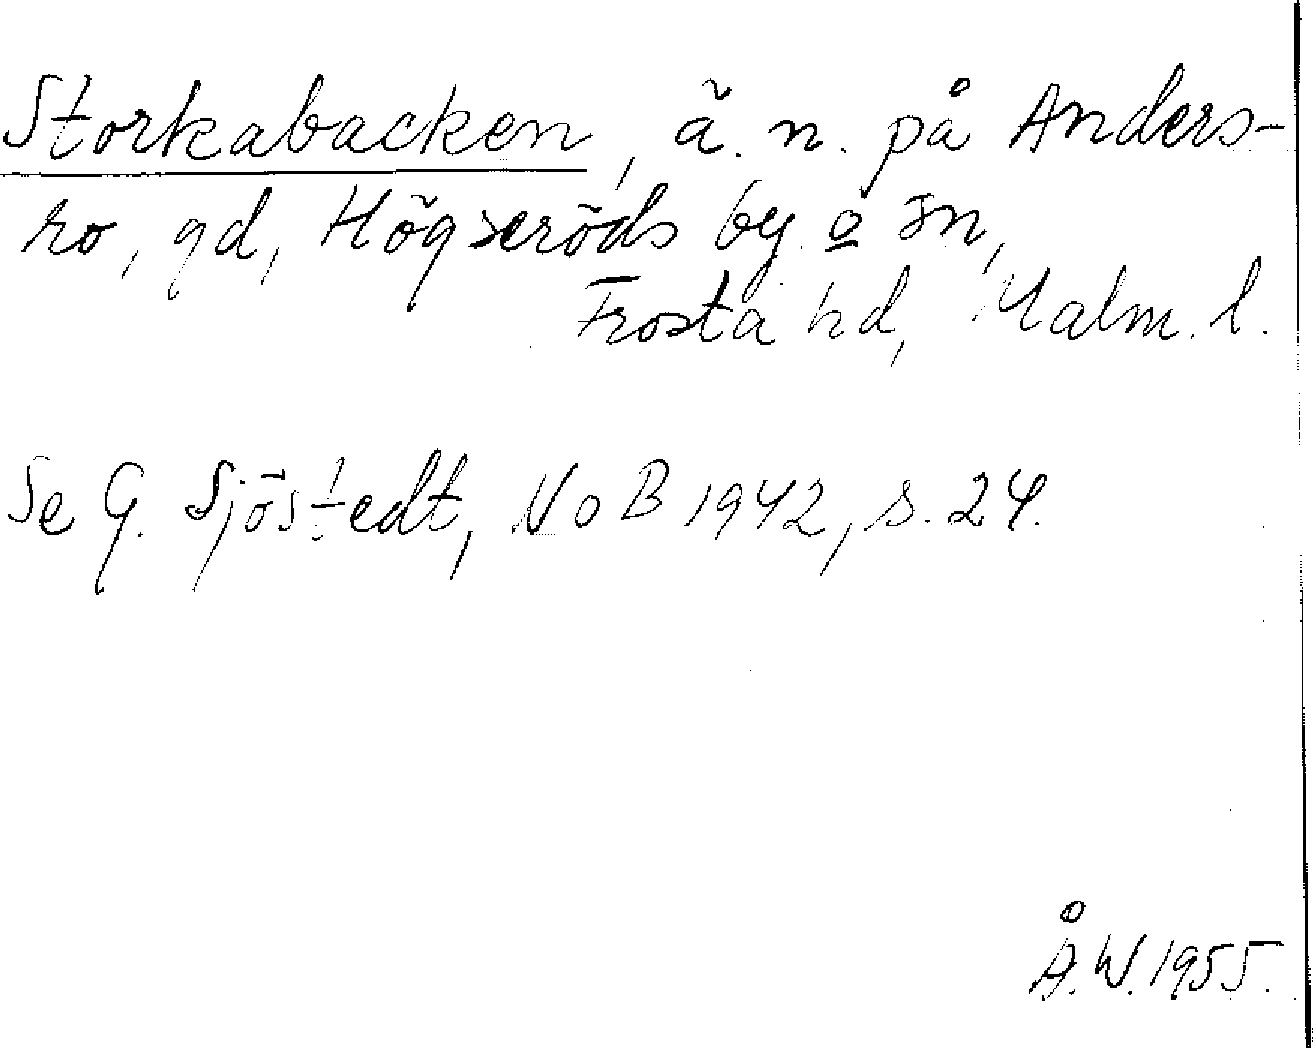 Storkabacken, ä. n. på Anders-
ro, gd, Högseröds by o sn,
Frosta hd, Malm. l.
Se G. Sjöstedt, NoB 1942, s. 24.
Å.W. 1955.